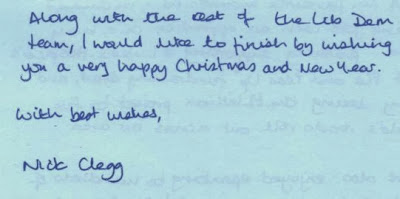 Along with the rest of the Lib Dem
team, I would like to finish by wishing
you a very happy Christmas and New Year.
With best wishes,
Nick Clegg